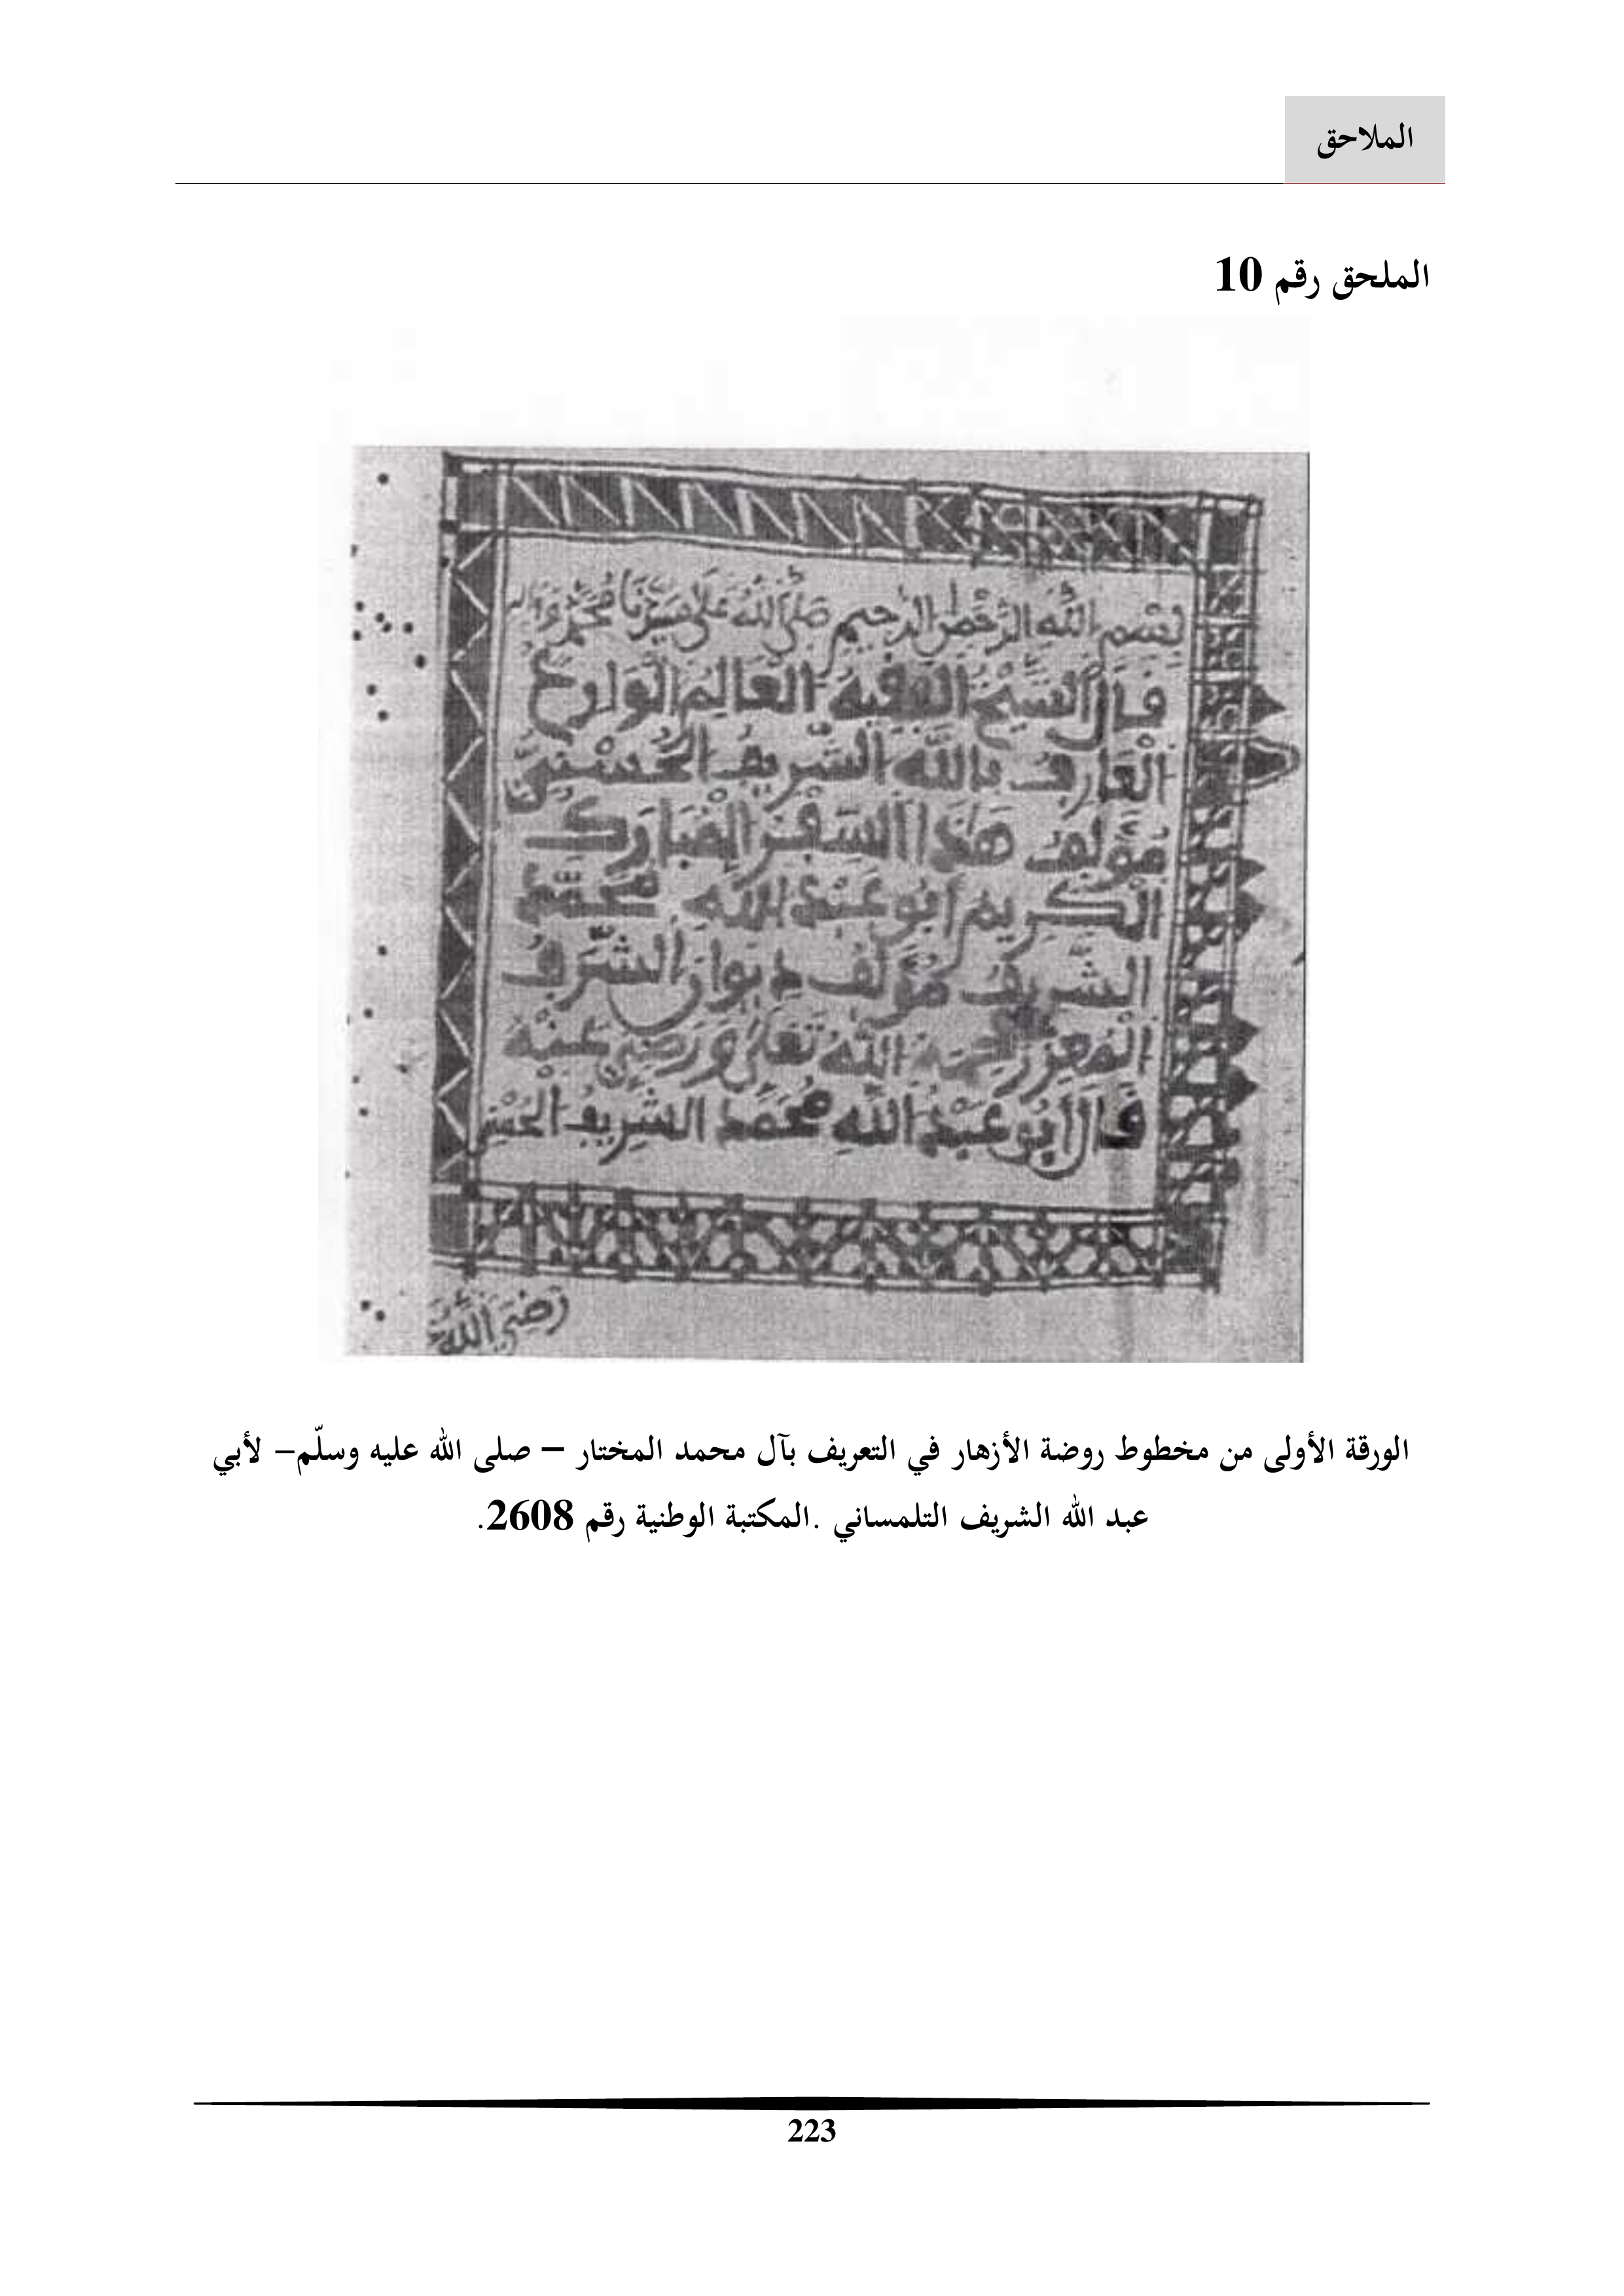 الملاحق
الملحق رقم 10
بسم الله الرحمن الرحيم صلى الله على سيدنا محمد وءاله
قال الشيخ الفقيه العالم الوارع
العارف بالله الشريف الحسني
مؤلف هذا السفر المبارك
الكريم أبو عبد الله محمد
الشريف مؤلف ديوان الشرف
المعزز رحمه الله تعلى ورضي عنه
قال أبو عبد الله محمد الشريف الحسني
رضي الله
الورقة الأولى من مخطوط روضة الأزهار في التعريف بآل محمد المختار – صلى الله عليه وسلّم– لأبي
عبد الله الشريف التلمساني .المكتبة الوطنية رقم 2608.
223